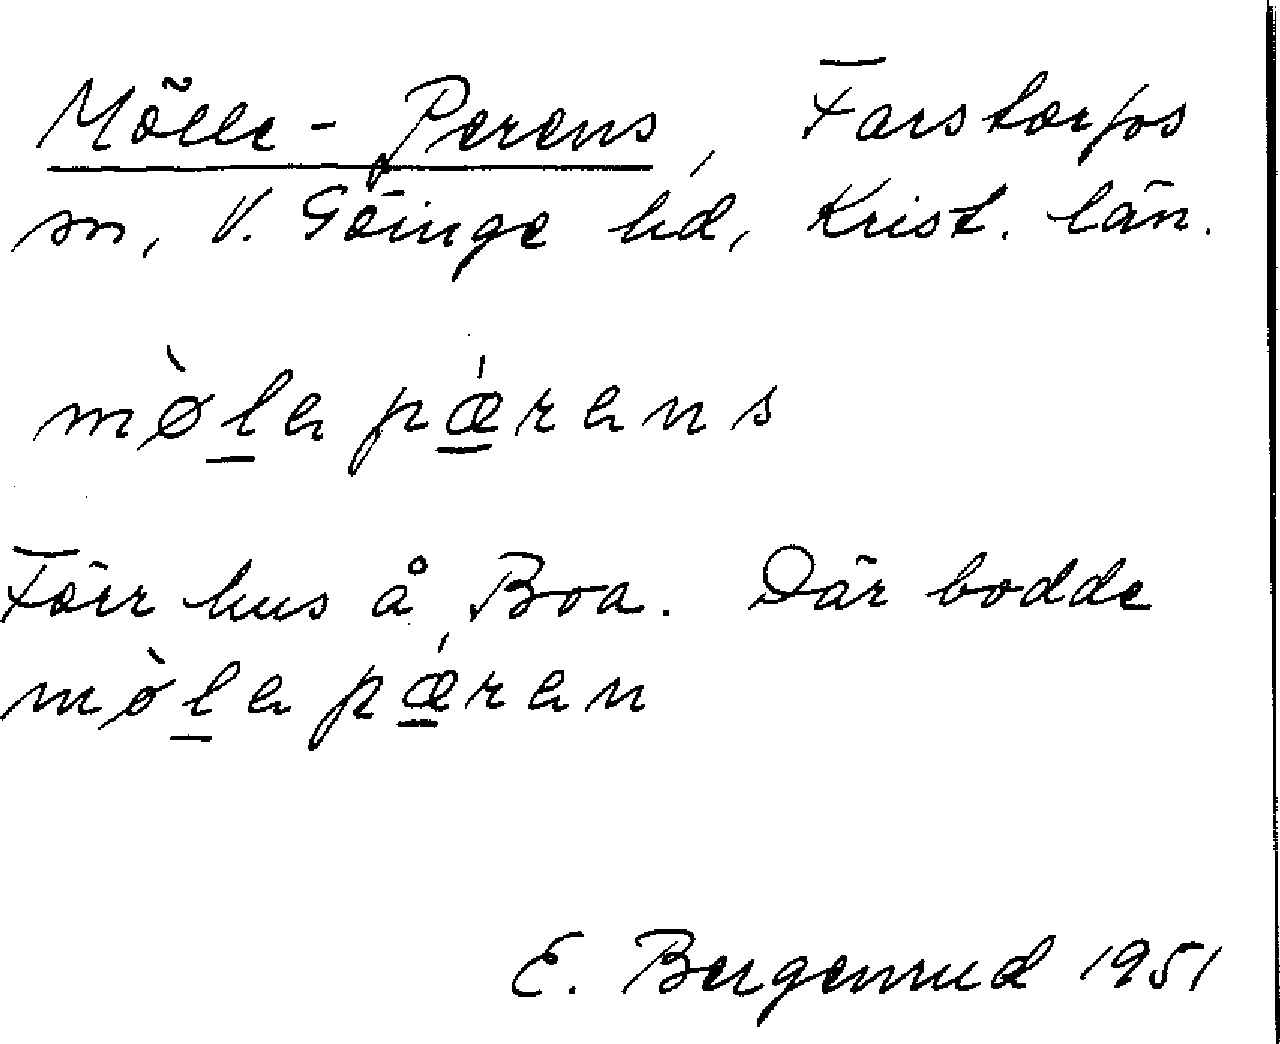 Mölle-Perens, Farstorps
sn, V. Göinge hd, Krist. län.
mø̀lɐ pǽrɐns
Förr hus å Boa. Där bodde
mø̀lɐ pǽrɐn
E. Bergenrud 1951